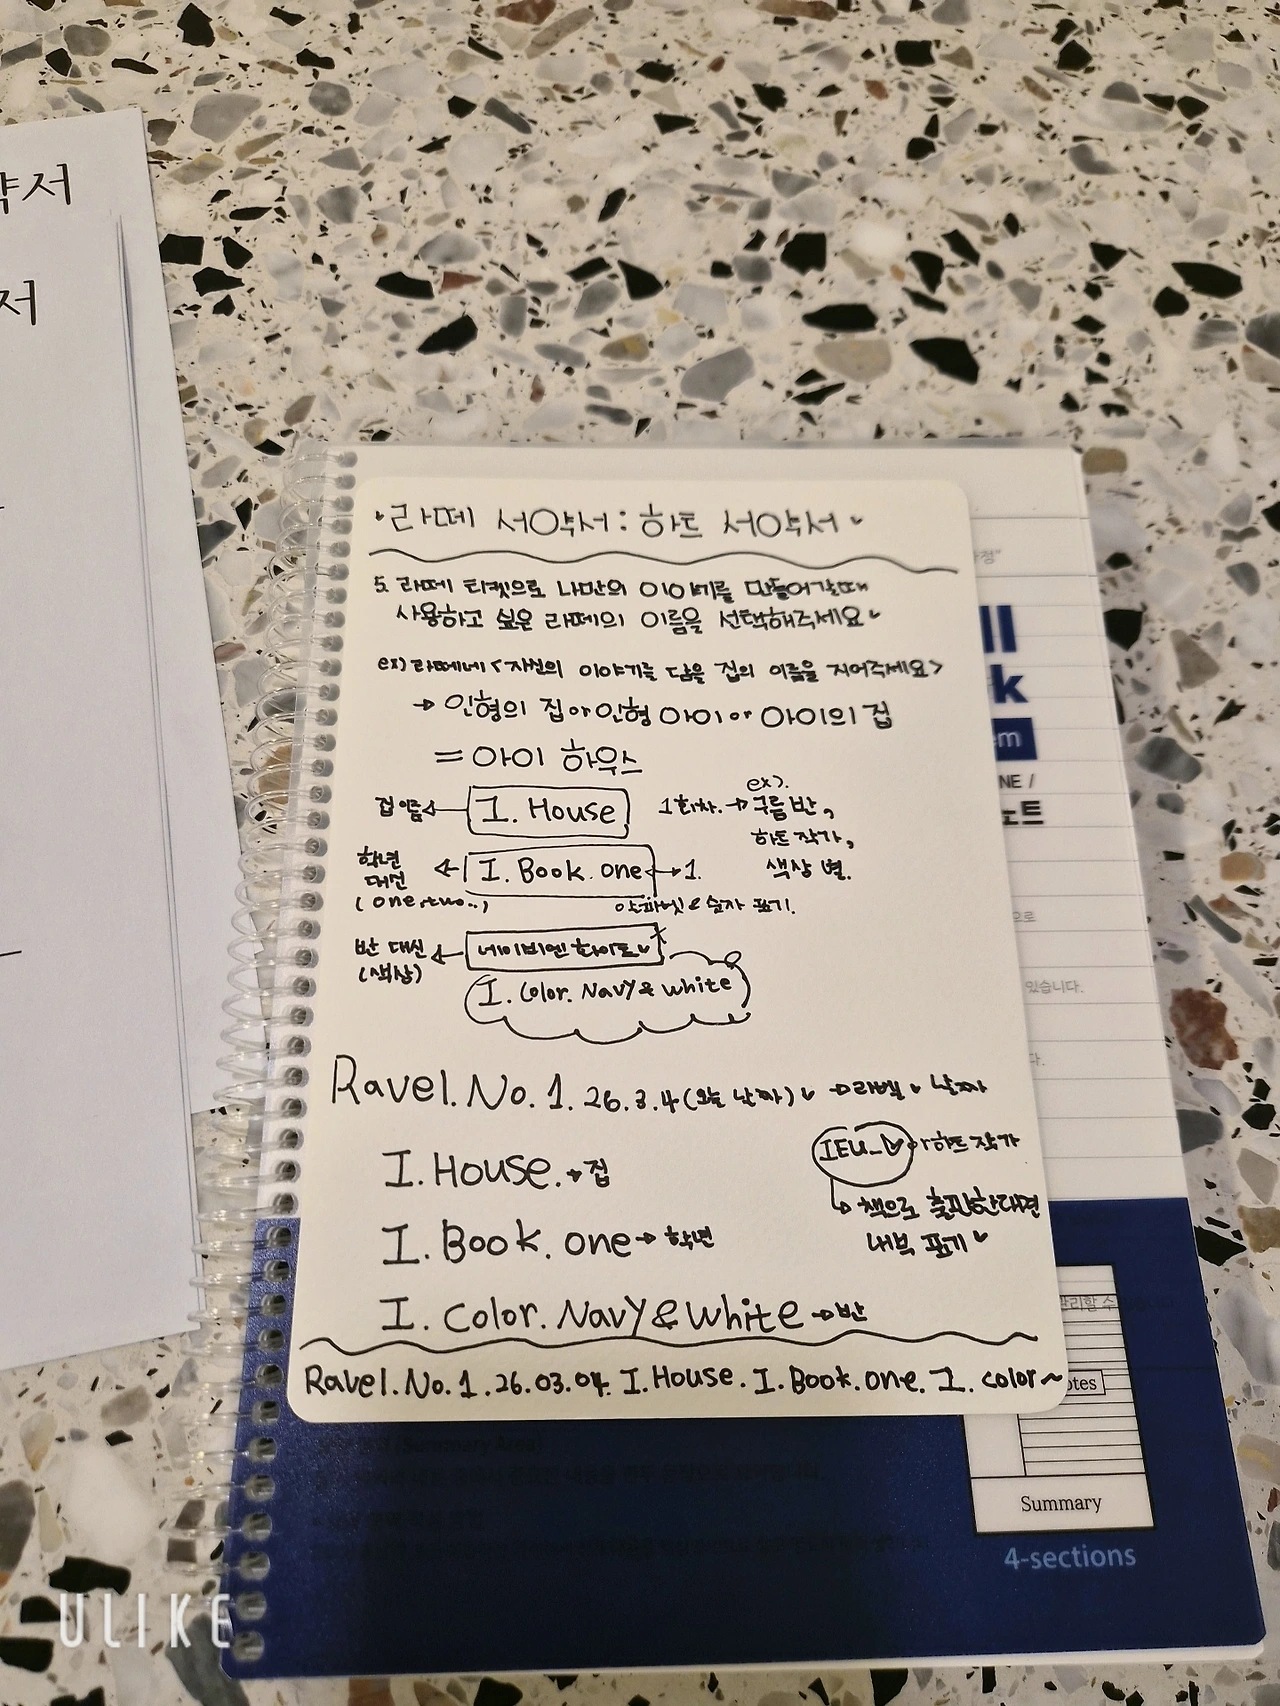 약서
서
♥라떼 서약서: 하트 서약서♥
5. 라떼 티켓으로 나만의 이야기를 만들어갈때
사용하고 싶은 라떼의 이름을 선택해주세요♥
ex) 라떼네 <자신의 이야기를 담을 집의 이름을 지어주세요>
→ 인형의 집 or 인형 아이 or 아이의 집
= 아이 하우스
집 이름 ← I. House
1회차. → ex). 구름 반,
하트 작가,
색상 별.
학년 대신 (one, two..) ← I. Book. one → 1.
알파벳 & 숫자 표기.
반 대신 (색상) ← 네이비엔 화이트♥
I. Color. Navy & White
Ravel. No. 1. 26.3.4 (오늘 날짜)♥ → 라벨♥날짜
I. House. → 집
IEU_♥ or 하트 작가
→ 책으로 출판한다면
내부 표기♥
I. Book. one → 학년
I. Color. Navy & White → 반
Ravel. No. 1. 26.03.04. I. House. I. Book. one. I. color~
ll
k
em
NE /
노트
으로
있습니다.
다.
관리할 수
otes
Summary
4-sections
(Summary Area)
ULIKE